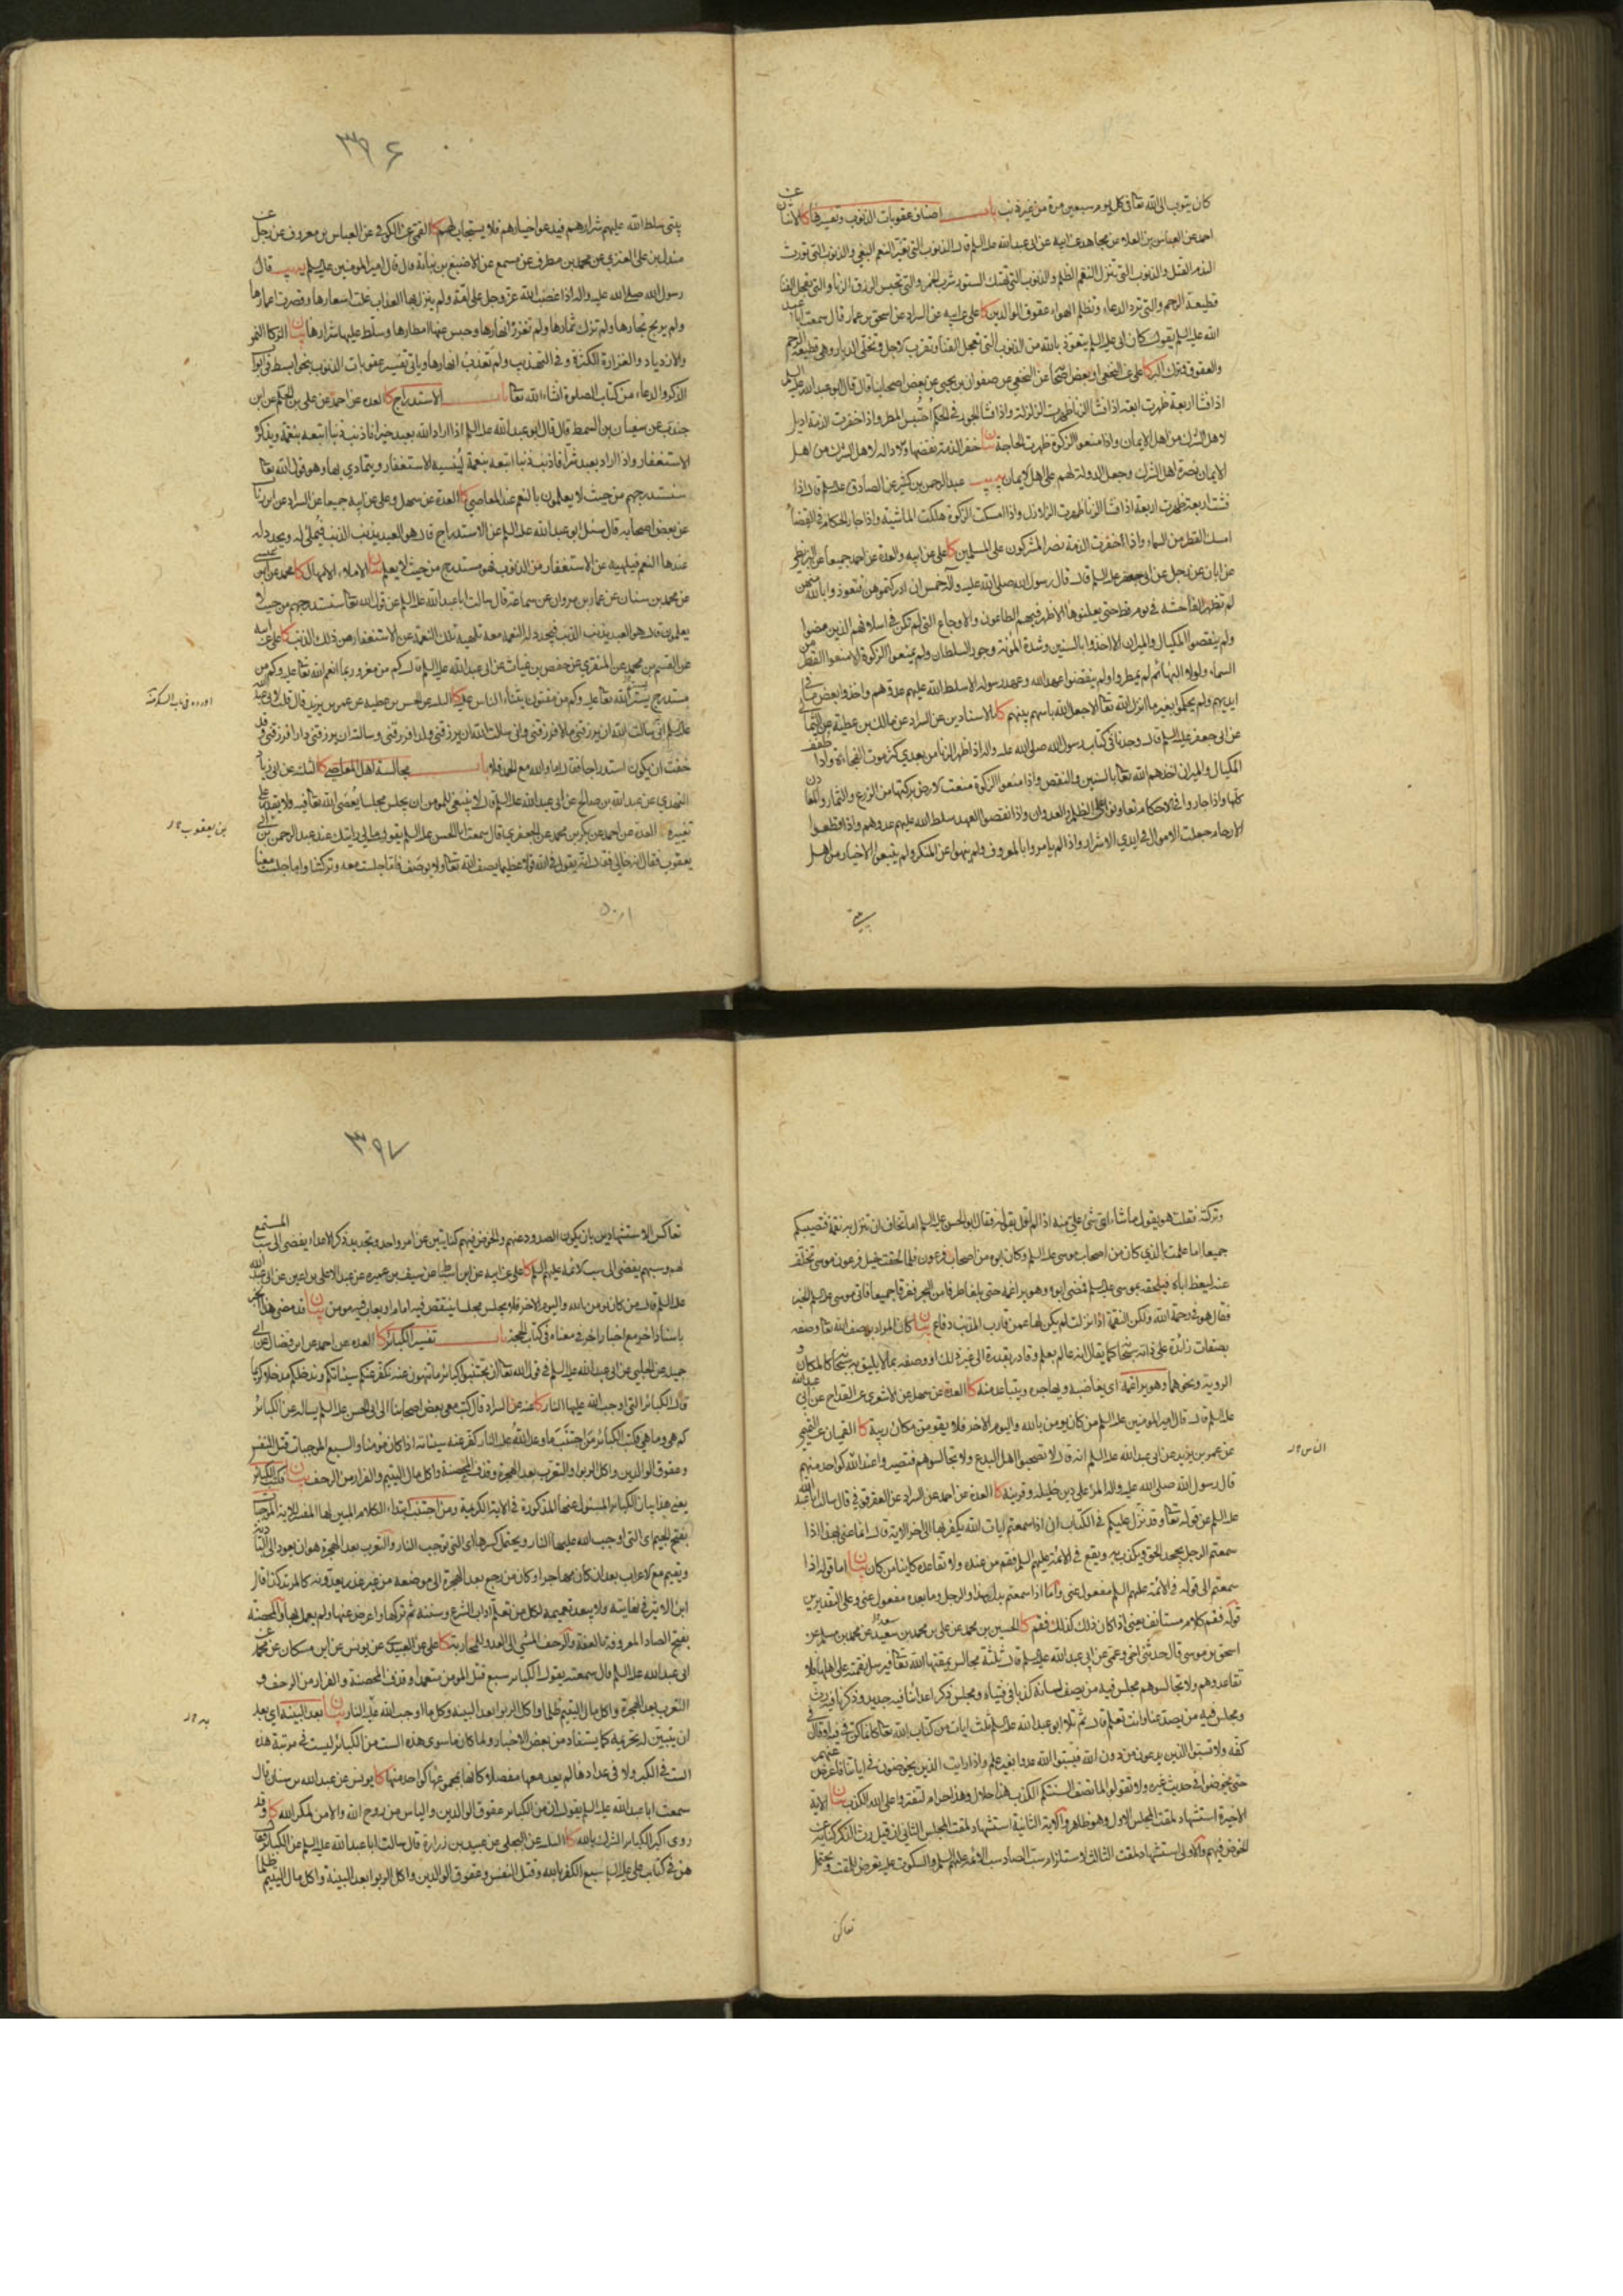 كان يتوب الى الله تعا فى كل يوم سبعين مرة من غير ذنب باب اصناف عقوبات الذنوب وتفسيرها كا الاثنان عن
احمد عن العباس بن العلاء عن مجاهد عن ابيه عن ابى عبد الله عليه السلم قال الذنوب التى تغير النعم البغى والذنوب التى تورث
الندم القتل والذنوب التى تنزل النقم الظلم والذنوب التى تهتك الستور شرب الخمر والتى تحبس الرزق الزنا والتى تعجل الفنا
قطيعة الرحم والتى ترد الدعاء وتظلم الهواء عقوق الوالدين كا على عن ابيه عن السراد عن اسحق بن عمار قال سمعت ابا عبد
الله عليه السلم يقول كان ابى عليه السلم يقول نعوذ بالله من الذنوب التى تعجل الفنا وتقرب الاجل وتخلى الديار وهى قطيعة الرحم
والعقوق وترك البر كا على عن النخعى او بعض اصحابه عن النخعى عن صفوان بن يحيى عن بعض اصحابنا قال قال ابو عبد الله عليه السلم
اذا فشا اربعة ظهرت اربعة اذا فشا الزنا ظهرت الزلزلة واذا فشا الجور فى الحكم احتبس المطر واذا خفرت الذمة اديل
لاهل الشرك من اهل الايمان واذا منعوا الزكوة ظهرت الحاجة بيان خفر الذمة نقضها والادالة لاهل الشرك من اهل
الايمان نصرة اهل الشرك وجعل الدولة لهم على اهل الايمان يب عبد الرحمن بن كثير عن الصادق عليه السلم قال اذا
فشت اربعة ظهرت اربعة اذا فشا الزنا ظهرت الزلازل واذا امسكت الزكوة هلكت الماشية واذا جار الحكام فى القضاء
امسك القطر من السماء واذا اخفرت الذمة نصر المشركون على المسلمين كا على عن ابيه والعدة عن احمد جميعا عن البزنطى
عن ابان عن رجل عن ابى جعفر عليه السلم قال قال رسول الله صلى الله عليه واله خمس ان ادركتموهن فتعوذوا بالله منهن
لم تظهر الفاحشة فى قوم قط حتى يعلنوها الا ظهر فيهم الطاعون والاوجاع التى لم تكن فى اسلافهم الذين مضوا
ولم ينقصوا المكيال والميزان الا اخذوا بالسنين وشدة المؤنة وجور السلطان ولم يمنعوا الزكوة الا منعوا القطر من
السماء ولولا البهائم لم يمطروا ولم ينقضوا عهد الله وعهد رسوله الا سلط الله عليهم عدوهم واخذوا بعض ما فى
ايديهم ولم يحكموا بغير ما انزل الله تعا الا جعل الله باسهم بينهم كا بالاسنادين عن السراد عن مالك بن عطية عن الثمالى
عن ابى جعفر عليه السلم قال وجدنا فى كتاب رسول الله صلى الله عليه واله اذا ظهر الزنا من بعدى كثر موت الفجاءة واذا طفف
المكيال والميزان اخذهم الله تعا بالسنين والنقص واذا منعوا الزكوة منعت الارض بركتها من الزرع والثمار والمعادن
كلها واذا جاروا فى الاحكام تعاونوا على الظلم والعدوان واذا نقضوا العهد سلط الله عليهم عدوهم واذا قطعوا
الارحام جعلت الاموال فى ايدى الاشرار واذا لم يامروا بالمعروف ولم ينهوا عن المنكر ولم يتبعوا الاخيار من اهل
بيتى
٣٩٦
بيتى سلط الله عليهم شرارهم فيدعوا خيارهم فلا يستجاب لهم كا القمى عن الكوفى عن العباس بن معروف عن رجل عن
مندل بن على العنزى عن محمد بن مطرف عن مسمع عن الاصبغ بن نباتة قال قال امير المؤمنين عليه السلم يب قال
رسول الله صلى الله عليه واله اذا غضب الله عز وجل على امة ولم ينزل بها العذاب غلت اسعارها وقصرت اعمارها
ولم يربح تجارها ولم تزك ثمارها ولم تغزر انهارها وحبس عنها امطارها وسلط عليها شرارها بيان الزكا النمو
والازدياد والغزارة الكثرة وفى التهذيب ولم تعذب انهارها وياتى تفسير عقوبات الذنوب بنحو ابسط فى ابواب
الذكر والدعاء من كتاب الصلوة انشاء الله تعا باب الاستدراج كا العدة عن احمد عن على بن الحكم عن ابن
جندب عن سفيان بن السمط قال قال ابو عبد الله عليه السلم اذا اراد الله بعبد خيرا فاذنب ذنبا اتبعه بنقمة ويذكره
الاستغفار واذا اراد بعبد شرا فاذنب ذنبا اتبعه بنعمة لينسيه الاستغفار ويتمادى بها وهو قول الله تعا
سنستدرجهم من حيث لا يعلمون بالنعم عند المعاصى كا العدة عن سهل وعلى عن ابيه جميعا عن السراد عن ابن رئاب
عن بعض اصحابه قال سئل ابو عبد الله عليه السلم عن الاستدراج قال هو العبد يذنب الذنب فيملى له ويجدد له
عندها النعم فيلهيه عن الاستغفار من الذنوب فهو مستدرج من حيث لا يعلم بيان الاملاء الامهال كا محمد عن ابن عيسى
عن محمد بن سنان عن عمار بن مروان عن سماعة قال سالت ابا عبد الله عليه السلم عن قول الله تعا سنستدرجهم من حيث لا
يعلمون قال هو العبد يذنب الذنب فيجدد له النعمة معه تلهيه تلك النعمة عن الاستغفار من ذلك الذنب كا على عن ابيه
عن القسم بن محمد عن المنقرى عن حفص بن غياث عن ابى عبد الله عليه السلم قال كم من مغرور بما انعم الله تعا عليه وكم من
مستدرج بستر الله تعا عليه وكم من مفتون بثناء الناس عليه كا الثلثة عن الحسن بن عطية عن عمر بن يزيد قال قلت لابى عبد الله
عليه السلم انى سالت الله ان يرزقنى مالا فرزقنى وانى سالت الله ان يرزقنى ولدا فرزقنى وسالته ان يرزقنى دارا فرزقنى وقد
خفت ان يكون استدراجا فقال اما والله مع الحمد فلا باب مجالسة اهل المعاصى كا الثلثة عن ابى زياد
النهدى عن عبد الله بن صالح عن ابى عبد الله عليه السلم قال لا ينبغى للمؤمن ان يجلس مجلسا يعصى الله تعا فيه ولا يقدر على
تغييره كا العدة عن احمد عن بكر بن محمد عن الجعفرى قال سمعت ابا الحسن عليه السلم يقول ما لى رايتك عند عبد الرحمن بن
يعقوب فقال انه خالى فقال انه يقول فى الله قولا عظيما يصف الله تعا ولا يوصف فاما جلست معه وتركتنا واما جلست معنا
بن يعقوب
وتركته فقلت هو يقول ما شاء اى شىء على منه اذا لم اقل بقوله فقال ابو الحسن عليه السلم اما تخاف ان تنزل به نقمة فتصيبكم
جميعا اما علمت بالذى كان من اصحاب موسى عليه السلم وكان ابوه من اصحاب فرعون فلما لحقت خيل فرعون موسى تخلف
عنه ليعظ اباه فيلحقه بموسى عليه السلم فمضى ابوه وهو يراغمه حتى بلغا طرفا من البحر فغرقا جميعا فاتى موسى عليه السلم الخبر
فقال هو فى رحمة الله ولكن النقمة اذا نزلت لم يكن لها عمن قارب المذنب دفاع بيان كان المراد بوصف الله تعا وصفه
بصفات زائدة على ذاته سبحانه كما يقال انه عالم بعلم وقادر بقدرة الى غير ذلك او وصفه بما لا يليق به سبحانه كالمكان و
الروية ونحوهما وهو يراغمه اى يغاضبه ويهاجره ويتباعد منه كا العدة عن سهل عن الاشعرى عن القداح عن ابى عبد الله
عليه السلم قال قال امير المؤمنين عليه السلم من كان يومن بالله واليوم الاخر فلا يقومن مكان ريبة كا القميان عن
عن عمر بن يزيد عن ابى عبد الله عليه السلم انه قال لا تصحبوا اهل البدع ولا تجالسوهم فتصيروا عند الله كواحد منهم
الناس
قال رسول الله صلى الله عليه واله المرء على دين خليله وقرينه كا العدة عن احمد عن السراد عن العقرقوفى قال سالت ابا عبد الله
عليه السلم عن قوله تعا وقد نزل عليكم فى الكتاب ان اذا سمعتم ايات الله يكفر بها الى اخر الاية قال انما عنى بهذا اذا
سمعتم الرجل يجحد الحق ويكذب به ويقع فى الائمة عليهم السلم فقم من عنده ولا تقاعده كائنا من كان بيان اما قوله اذا
سمعتم الى قوله فى الائمة عليهم السلم مفعول عنى واما اذا سمعتم بدل هذا والرجل وما بعده مفعول عنى وعلى التقديرين
قوله فقم كلام مستانف يعنى اذا كان ذلك كذلك فقم كا الحسين بن محمد عن على بن محمد بن سعد عن محمد بن مسلم عن
اسحق بن موسى قال حدثنى اخى وعمى عن ابى عبد الله عليه السلم قال ثلثة مجالس يمقتها الله تعا فيرسل نقمته على اهلها فلا
تقاعدوهم ولا تجالسوهم مجلس فيه من يصف لسانه كذبا فى فتياه ومجلس ذكر اعدائنا فيه جديد وذكرنا فيه رث
ومجلس فيه من يصد عنا وانت تعلم قال ثم تلا ابو عبد الله عليه السلم ثلث ايات من كتاب الله تعا كانما كن فى فيه او قال فى
كفه ولا تسبوا الذين يدعون من دون الله فيسبوا الله عدوا بغير علم واذا رايت الذين يخوضون فى اياتنا فاعرض عنهم
حتى يخوضوا فى حديث غيره ولا تقولوا لما تصف السنتكم الكذب هذا حلال وهذا حرام لتفتروا على الله الكذب بيان الاية
الاخيرة استشهاد لمقت المجلس الاول وهو ظاهر والاية الثانية استشهاد لمقت المجلس الثانى ان قيل رث الذكر كناية عن
الخوض فيهم والاولى استشهاد لمقت الثالث لاستلزام سب الصاد سب الائمة عليهم السلم والسكوت عليه تعرض للمقت ويحتمل
تعاكس
٣٩٧
تعاكس الاستشهادين بان يكون الصدود عنهم والخوض فيهم كنايتين عن امر واحد وتجديد ذكر الاعداء يفضى الى سب المستمع
لهم وسبهم يفضى الى سب الائمة عليهم السلم كا على عن ابيه عن ابن اسباط عن سيف بن عميرة عن عبد الاعلى بن اعين عن ابى عبد الله
عليه السلم قال من كان يومن بالله واليوم الاخر فلا يجلس مجلسا ينتقص فيه امام او يعاب فيه مومن بيان قد مضى هذا الخبر
باسناد اخر مع اخبار اخر فى معناه فى كتاب الحجة باب تفسير الكبائر كا العدة عن احمد عن ابن فضال عن ابى
جميلة عن الحلبى عن ابى عبد الله عليه السلم فى قول الله تعا ان تجتنبوا كبائر ما تنهون عنه نكفر عنكم سيئاتكم وندخلكم مدخلا كريما
قال الكبائر التى اوجب الله عليها النار كا عنه عن السراد قال كتب معى بعض اصحابنا الى ابى الحسن عليه السلم يساله عن الكبائر
كم هى وما هى فكتب الكبائر من اجتنب ما وعد الله عليه النار كفر عنه سيئاته اذا كان مؤمنا والسبع الموجبات قتل النفس
وعقوق الوالدين واكل الربوا والتعرب بعد الهجرة وقذف المحصنة واكل مال اليتيم والفرار من الزحف بيان فكتب الكبائر
يعنى هذا بيان الكبائر المسئول عنها المذكورة فى الاية الكريمة ومن اجتنب ابتداء الكلام المبين لها المفسر للاية الموجبات
بفتح الجيم اى التى اوجب الله عليها النار ويحتمل كسرها اى التى توجب النار والتعرب بعد الهجرة هو ان يعود الى البادية
ويقيم مع الاعراب بعد ان كان مهاجرا وكان من رجع بعد الهجرة الى موضعه من غير عذر يعدونه كالمرتد كذا قال
ابن الاثير فى نهايته ولا يبعد تعميمه لكل من تعلم اداب الشرع وسننه ثم تركها واعرض عنها ولم يعمل بها والمحصنة
بفتح الصاد المعروفة بالعفة والزحف المشى الى العدو للمحاربة كا على عن العبيدى عن يونس عن ابن مسكان عن محمد عن
ابى عبد الله عليه السلم قال سمعته يقول الكبائر سبع قتل المومن متعمدا وقذف المحصنة والفرار من الزحف و
التعرب بعد الهجرة واكل مال اليتيم ظلما واكل الربوا بعد البينة وكل ما اوجب الله عليه النار بيان بعد البينة اى بعد
ان يتبين له تحريمه كما يستفاد من بعض الاخبار ولما كان ما سوى هذه الست من الكبائر ليست فى مرتبة هذه
الست فى الكبر ولا فى عدادها لم يعد معها مفصلا كانها بمجموعها كواحدة منها كا يونس عن عبد الله بن سنان قال
سمعت ابا عبد الله عليه السلم يقول ان من الكبائر عقوق الوالدين والياس من روح الله والامن لمكر الله كا وقد
روى اكبر الكبائر الشرك بالله كا الثلثة عن البجلى عن عبيد بن زرارة قال سالت ابا عبد الله عليه السلم عن الكبائر فقال
هن فى كتاب على عليه السلم سبع الكفر بالله وقتل النفس وعقوق الوالدين واكل الربوا بعد البينة واكل مال اليتيم ظلما